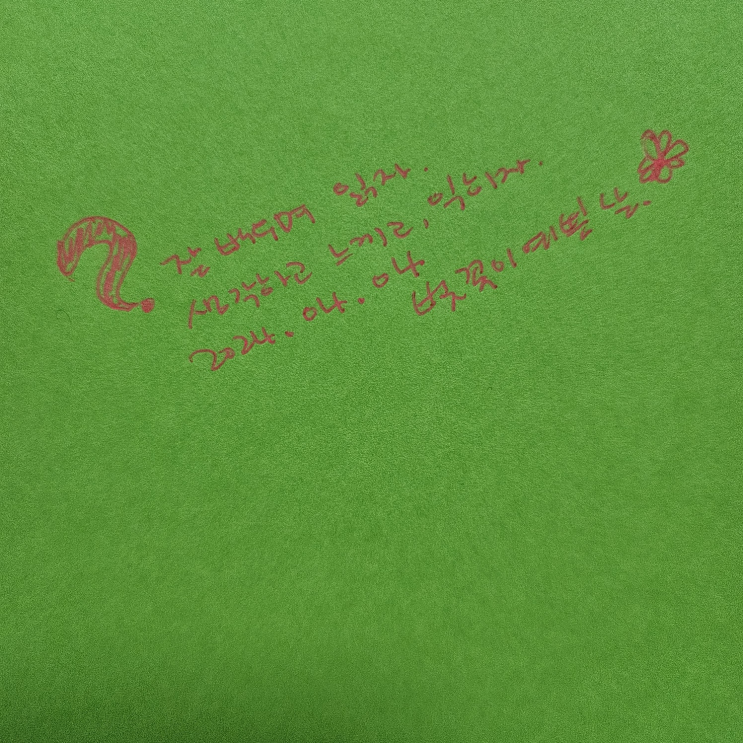 잘 배우며 읽자.
생각하고 느끼고, 익히자.
2024. 04. 04
벚꽃이 예쁜 날.